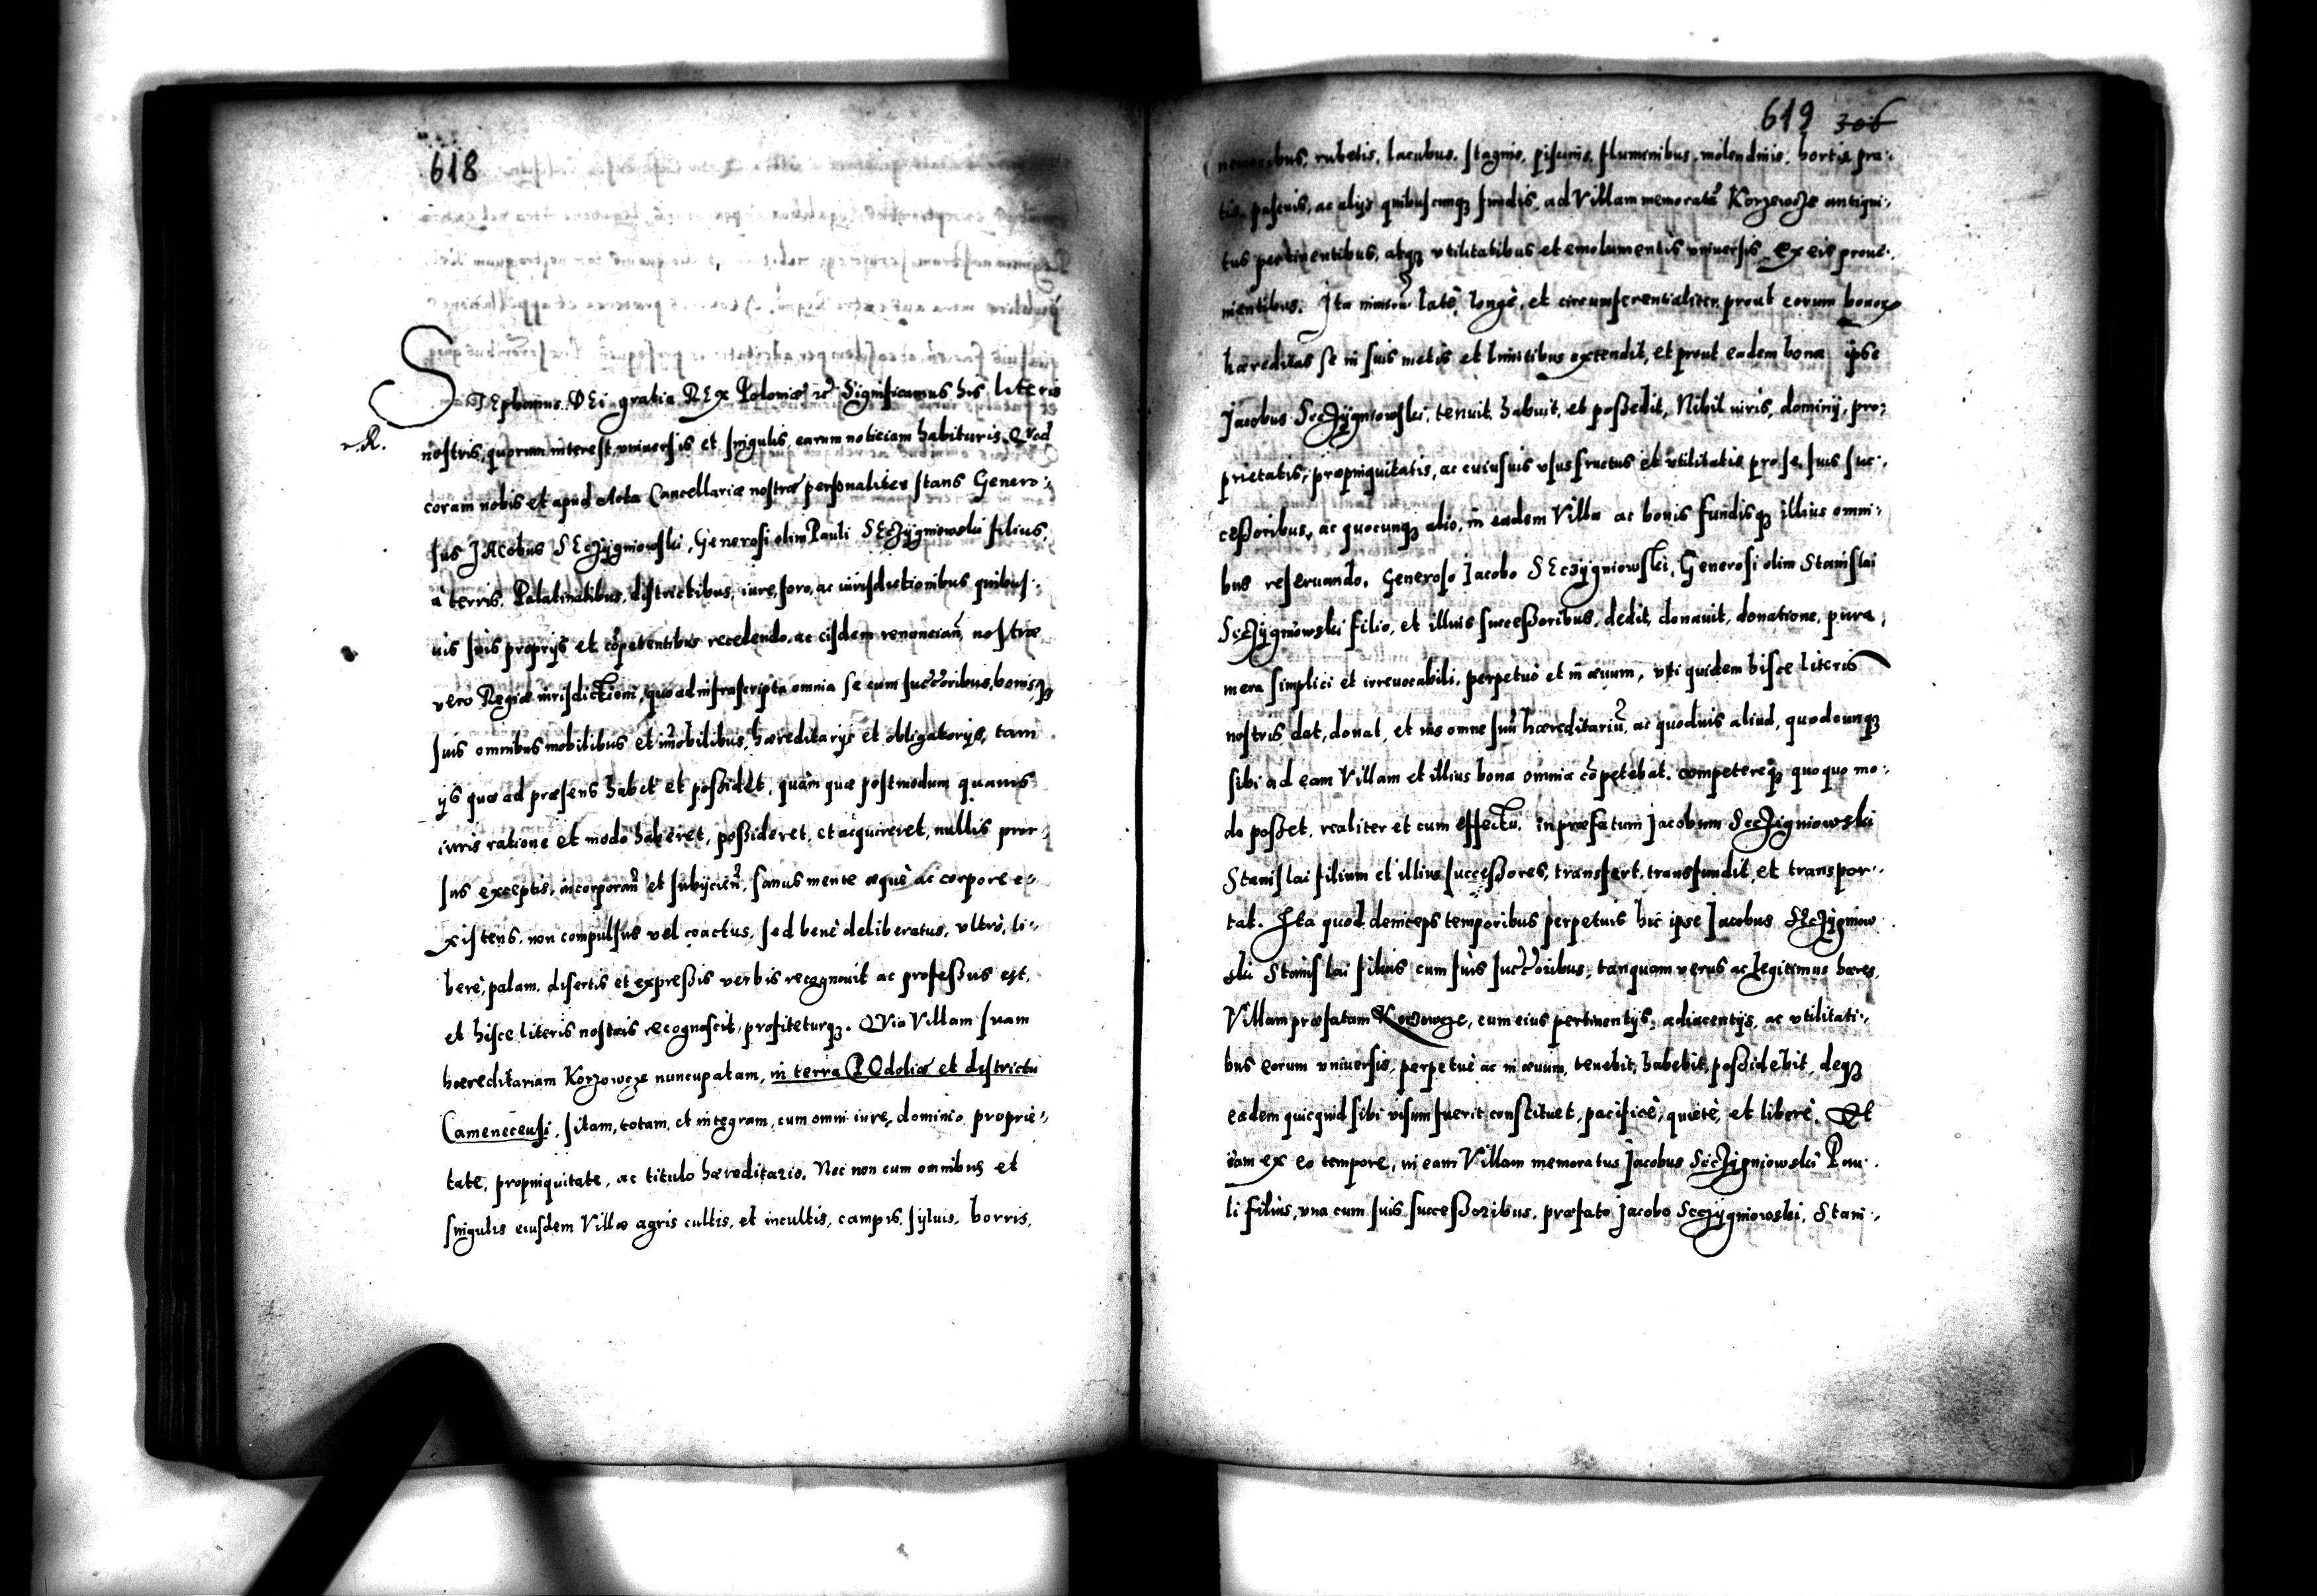 618
STEphanus DEi gratia REx Poloniæ etc̃ Significamus his literis
R.
nostris, quorum interest, vniuersis et singulis, earum noticiam habituris. QVod
coram nobis et apud Acta Cancellariæ nostræ personaliter stans Genero:,
sus JAcobus SEczÿgniowski, Generosi olim Pauli SEczÿgniowski filius,
à terris, Palatinatibus, districtibus, iure, foro, ac iurisdictionibus quibus:,
uis suis proprijs et cõpetentibus recedendo, ac eisdem renuncian̄, nostræ
vero Regiæ iurisdictioni, quo ad infrascripta omnia se cum succ̃oribus, bonisqȝ
suis omnibus mobilibus et im̃obilibus, hæreditarijs et obligatorijs, tam
ijs quæ ad præsens habet et poßidet, quàm quæ postmodum quauis
iuris ratione et modo haberet, poßideret, et acquireret, nullis pror:,
sus exceptis, incorporan̄ et subijcien̄, sanus mente æquè ac corpore e:,
xistens, non compulsus vel coactus, sed benè deliberatus, vltrò, li:,
berè, palam, disertis et expreßis verbis recognouit ac profeßus est,
et hisce literis nostris recognoscit, profiteturqȝ. QVia Villam suam
hæreditariam Korzowcze nuncupatam, in terra POdoliæ et districtu
Camenecensi, sitam, totam, et integram, cum omni iure, dominio, proprie:,
tate, propinquitate, ac titulo hæreditario. Nec non cum omnibus et
singulis eiusdem Villæ agris cultis, et incultis, campis, sÿluis, borris,
619 306
nemoribus, rubetis, lacubus, stagnis, piscinis, fluminibus, molendinis, hortis, pra:,
tis, pascuis, ac alijs quibuscunqȝ fundis, ad Villam memoratã Korzowcze antiqui:,
tus pertinentibus, atqȝ vtilitatibus et emolumentis vniuersis, ex eis proue:,
nientibus. Jta latè, longè, et circumferentialiter, prout eorum bonorum
hæreditas se in suis metis et limitibus extendit, et prout eadem bona ipse
Jacobus Seczÿgniowski, tenuit, habuit, et poßedit, Nihil iuris, dominij, pro:,
prietatis, propinquitatis, ac cuiusuis vsusfructus et vtilitatis pro se, suis suc:,
ceßoribus, ac quocunqȝ alio, in eadem Villa ac bonis fundisqȝ illius omni:,
bus reseruando. Generoso Jacobo SEczÿgniowski, Generosi olim Stanislai
Seczÿgniowski filio, et illius succeßoribus, dedit, donauit, donatione, pura,
mera simplici et irreuocabili, perpetuò et in æuum, vti quidem hisce literis
nostris dat, donat, et ius omne suũ hæreditariũ, ac quoduis aliud, quodcunqȝ
sibi ad eam Villam et illius bona omnia cõpetebat, competereqȝ quoquo mo:,
do poßet, realiter et cum effectu, in præfatum Jacobum Seczigniowski
Stanislai filium et illius succeßores, transfert, transfundit, et transpor:,
tat. Jta quod deinceps temporibus perpetuis hic ipse Jacobus SEczÿgniow
ski Stanislai filius cum suis succ̃oribus, tanquam verus ac legitimus hæres,
Villam præfatam Korzowcze, cum eius pertinentijs, adiacentijs, ac vtilitati:,
bus eorum vniuersis, perpetuè ac in æuum, tenebit, habebit, poßidebit, deqȝ
eadem quicquid sibi visum fuerit constituet, pacificè, quietè, et liberè. Et
iam ex eo tempore, in eam Villam memoratus Jacobus Seczÿgniowski Pau:,
li filius, vna cum suis succeßoribus, præfato Jacobo Seczÿgniowski, Stani:,